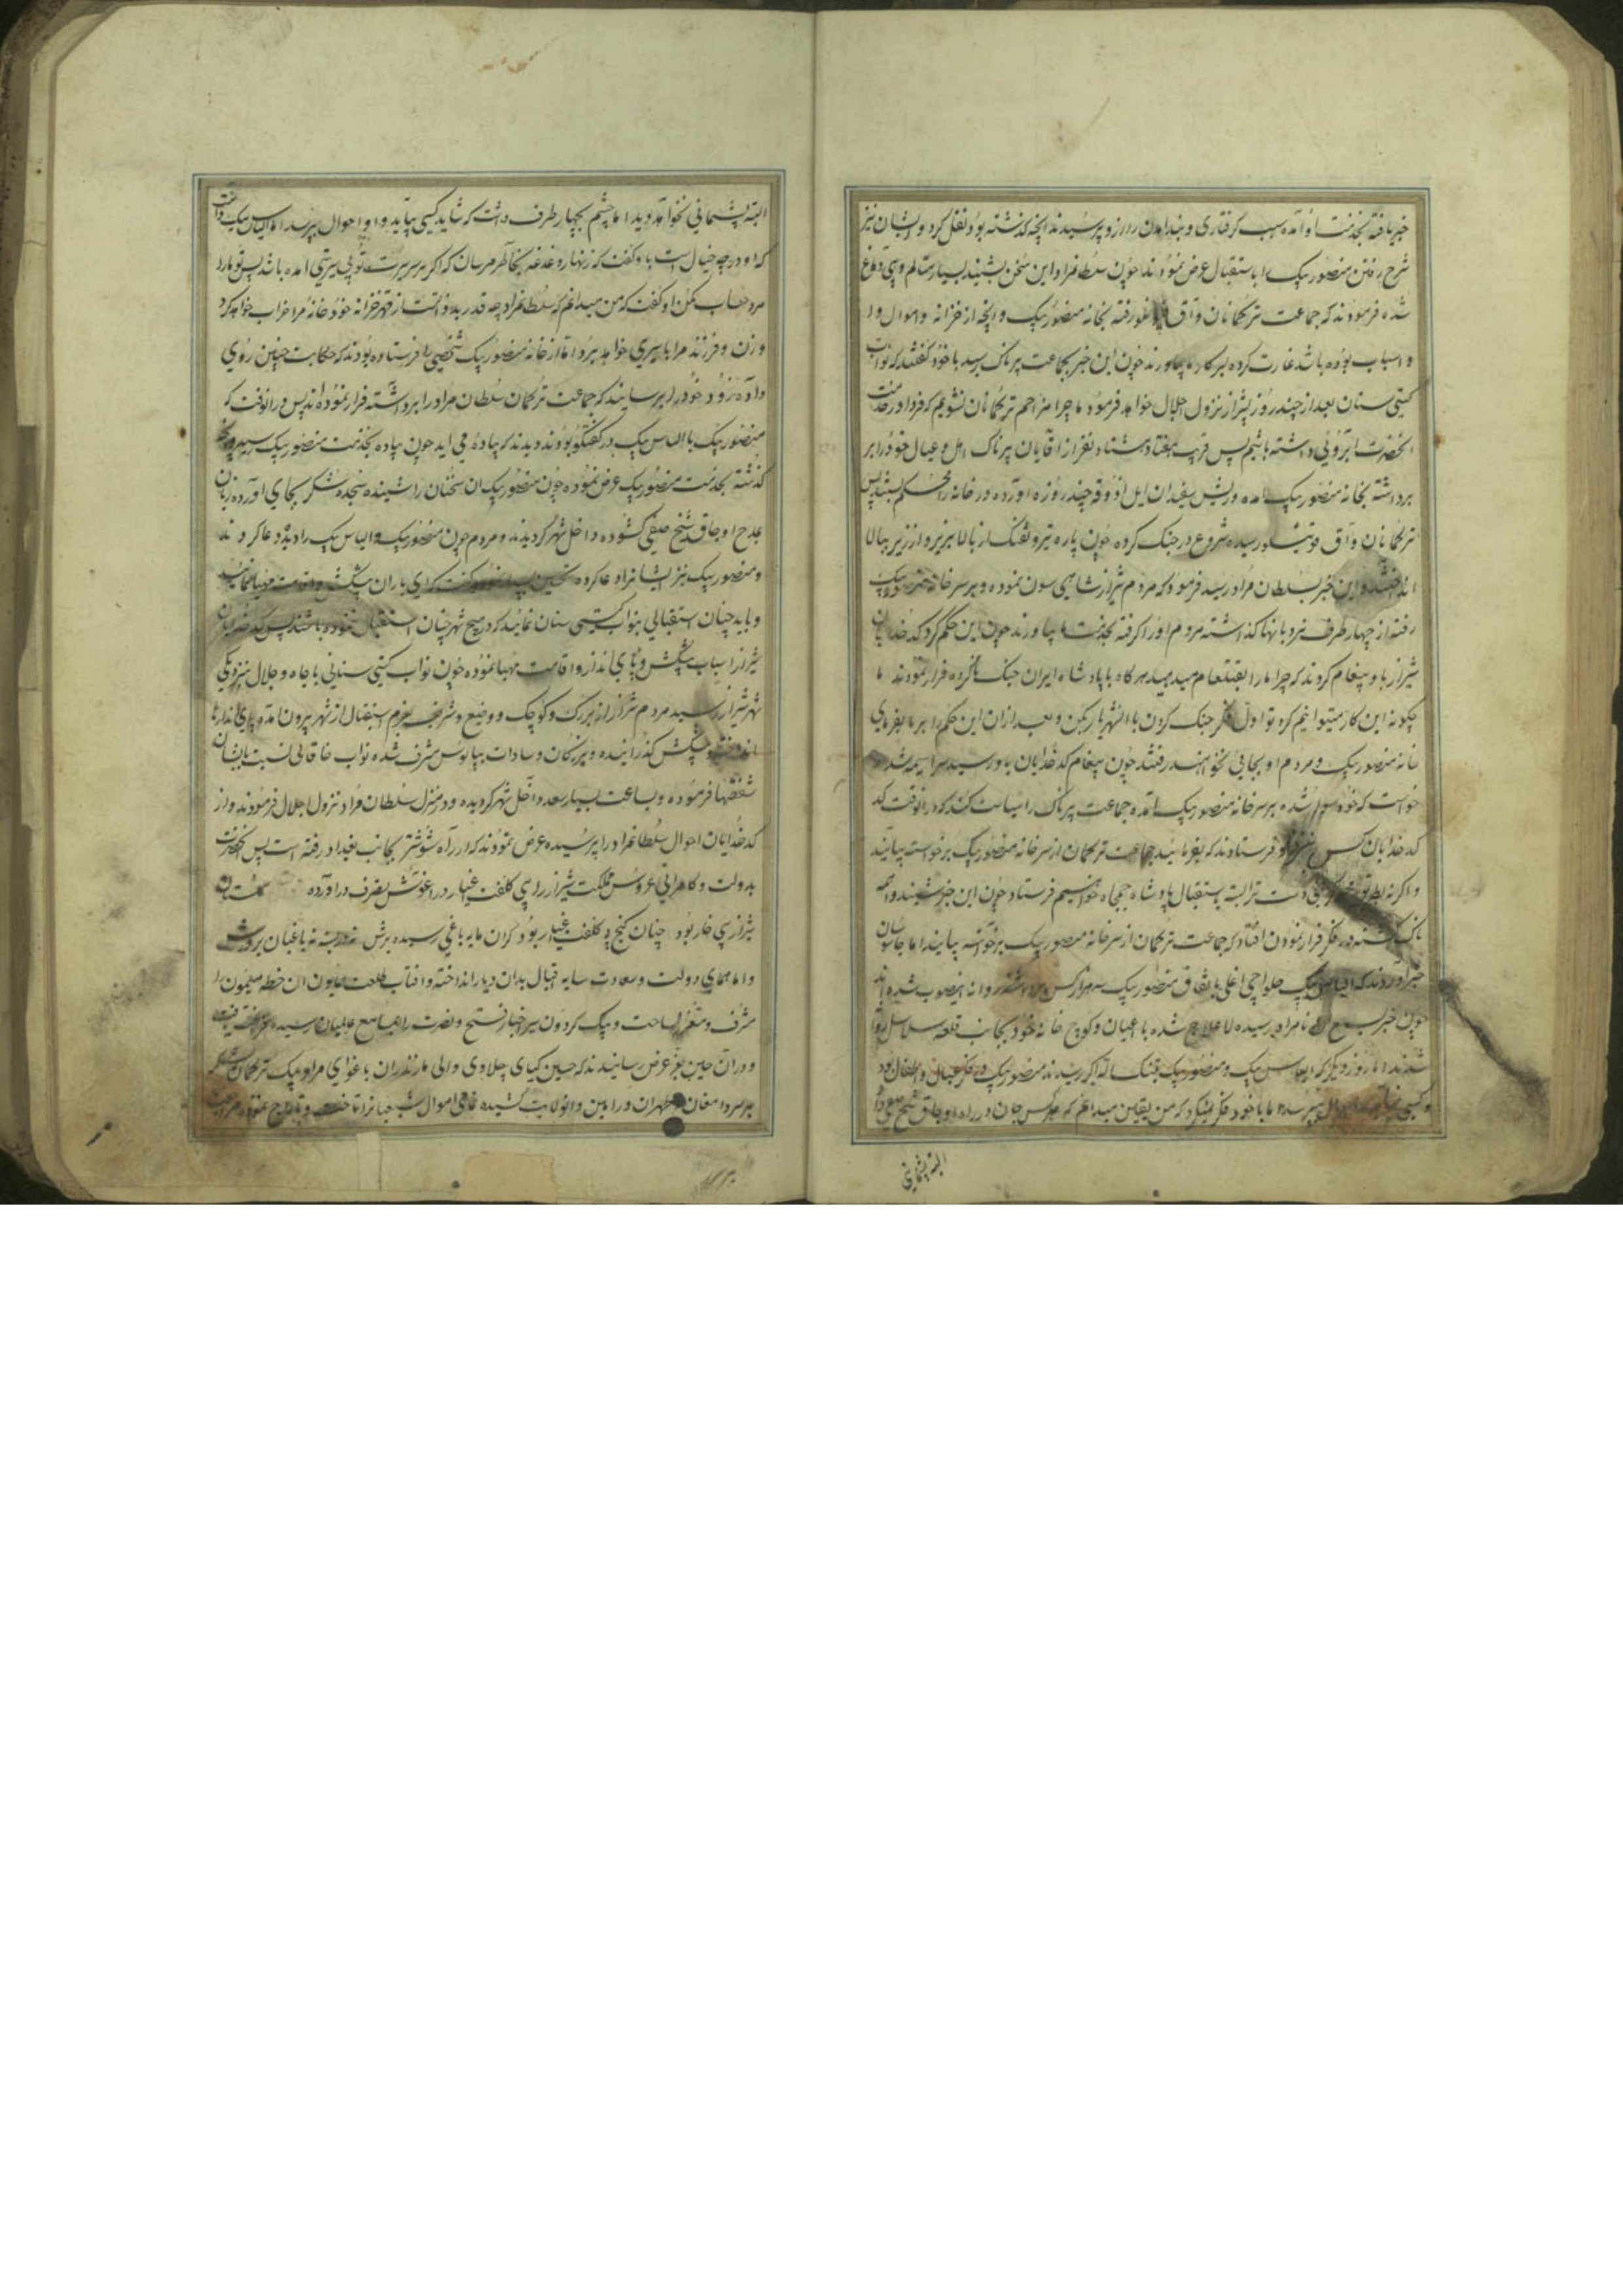 خبر یافته بخدمت او آمده سبب کرفتاری و بند از و پرسیدند انچه کذشته بود نقل کرد و ایشان نیز
شرح رفتن منصور بیک را باستقبال عرض نمودند چون سلطانمراد این سخن بشنید بسیار متالم و بی دماغ
شده فرمود که جماعت ترکمانان و آق قوینلو رفته بخانه منصور بیک و انچه از خزانه و اموال او
و اسباب بوده باشد غارت کرده بسرکار ما بیاورند چون این خبر بجماعت پرناک رسید با خود کفتند که نواب
کیتی ستان بعد از چند روز بشیراز نزول اجلال خواهد فرمود ما چرا مزاحم ترکمانان نشویم که فردا در خدمت
انحضرت ابروئی داشته باشیم پس قریب هفتاد هشتاد نفر از آقایان پرناک اهل و عیال خود را بر
برداشته بخانه منصور بیک امده و ریش سفیدان ایل اذوقه چند روزه اورده در خانه را محکم بستند پس
ترکمانان و آق قوینلو رسیده شروع در جنک کرده چون پاره تیر و تفنک از بالا بزیر و از زیر ببالا
انداختند و این خبر بسلطان مراد رسید فرمود که مردم شیراز شاهی سون نموده و بر سر خانه منصور بیک
رفته از چهار طرف نردبانها کذاشته مردم او را کرفته بخدمت ما بیاورند چون این حکم کرد کدخدایان
شیراز باو پیغام کردند که چرا ما را بقتلعام میدهید هر کاه با پادشاه ایران جنک ناکرده فرار نمودند ما
چکونه این کار میتوانیم کرد تو اول فکر جنک کردن با ان شهریار بکن و بعد از ان این حکم را بر ما بفرمای
خانه منصور بیک و مردم او بجائی نخواهند رفت چون پیغام کدخدایان باو رسید سراسیمه شد
خواست که خود سوار شده بر سر خانه منصور بیک امده جماعت پرناک را سیاست کند که در انوقت کد
کدخدایان کس نزد او فرستادند که بفرمائید جماعت ترکمان از سر خانه منصور بیک برخواسته بیایند
و اکرنه ترا البته باستقبال پادشاه جمجاه خواهیم فرستاد چون این خبر شنید واهمه
ناک شده در فکر فرار نمودن افتاد که جماعت ترکمان از سر خانه منصور بیک برخواسته بیایند اما جاسوسان
خبر آوردند که الیاس بیک حلواجی اغلی باتفاق منصور بیک سه هزار کس برداشته روانه انصوب شده اند
چون خبر بسمع ان نامراد رسیده لاعلاج شده با اعیان و کوچ خانه خود بجانب قلعه سلاسل روانه
شدند اما روز دیکر که الیاس بیک و منصور بیک بتنک الله اکبر رسیدند منصور بیک در فکر عیال و اطفال بود
و کسی احوال نپرسد اما با خود فکر میکرد که من یقین میدانم که هر کس جان در راه اوجاق شیخ صفی داد
البته پشیمانی
البته پشیمانی نخواهد دید اما چشم بچهار طرف داشت که شاید کسی بیاید و او احوال بپرسد اما الیاس بیک دانست
که او در چه خیال است باو کفت که زنهار دغدغه بخاطر مرسان که اکر بر سر بیت توپی پرستی امده باشد پس تو ما را
مرد حساب مکن او کفت که من میدانم که سلطانمراد چه قدر بدذاتست از قهر خزانه خود خانه مرا خراب خواهد کرد
و زن و فرزند مرا باسیری خواهد برد اما از خانه منصور بیک شخصی را فرستاده بودند که حکایت چنین روی
داده زود خود را برسانید که جماعت ترکمان سلطان مراد را برداشته فرار نموده اند پس در انوقت که
منصور بیک با الیاس بیک در کفتکو بودند دیدند که پیاده می اید چون پیاده بخدمت منصور بیک رسید
کذشته بخدمت منصور بیک عرض نموده چون منصور بیک ان سخنان را شنیده سجده شکر بجای آورده زبان
بمدح اوجاق شیخ صفی کشوده داخل شهر کردیدند و مردم چون منصور بیک و الیاس بیک را دیدند دعا کردند
و منصور بیک نیز ایشانرا دعا کرده تحسین بسیار نمود و کفت که ای یاران پیشکش و اقامت مهیا نمائید
و باید چنان استقبالی بنواب کیتی ستان نمائید که در هیچ شهر چنان استقبال ننموده باشند پس کدخدایان
شیراز اسباب پیشکش و پای انداز و اقامت مهیا نموده چون نواب کیتی ستانی با جاه و جلال بنزدیکی
شهر شیراز رسید مردم شیراز از بزرک و کوچک و وضیع و شریف بعزم استقبال از شهر بیرون آمده پای اندازها
انداخته و پیشکش کذرانیده و بزرکان و سادات بپابوس مشرف شده نواب خاقانی نسبت بایشان
شفقتها فرموده و بساعت بسیار سعد داخل شهر کردیده و در منزل سلطان مراد نزول اجلال فرمودند و از
کدخدایان احوال سلطانمراد را پرسیده عرض نمودند که از راه شوشتر بجانب بغداد رفته است پس انحضرت
بدولت و کامرانی عروس مملکت شیراز را بی کلفت اغیار در اغوش تصرف دراورده کلستان
شیراز بی خار بود چنان کنج بی کلفت اغیار بود کران مایه باغی رسیده برش نه در بسته نه باغبان بر درش
و اما همای دولت و سعادت سایه اقبال بدان دیار انداخته و افتاب طلعت همایون ان خطه میمون را
مشرف و متغزل ساخت و پیک کردون سیر اخبار فتح و نصرت را بمسامع عالمیان رسیده
و در آن حین بعز عرض رسانیدند که حسین کیای چلاوی والی مازندران باغوای مراد بیک ترکمان لشکر
بر سر دامغان و طهران و ورامین و انولایت کشیده تمامی اموال شیعیانرا تاخت و تاراج نموده مراجعت